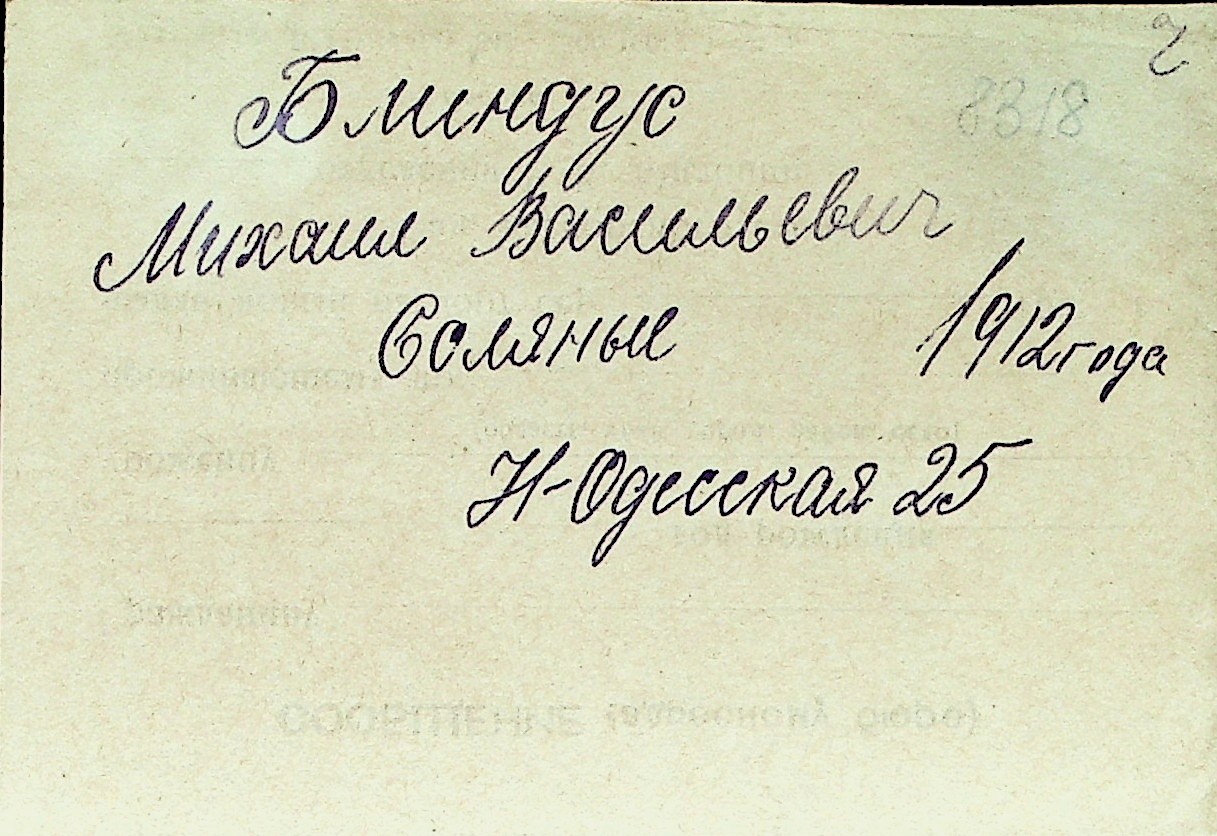 8318
Блиндус
Михаил Васильевич
Соляные 1912 года
Н-Одесская 25